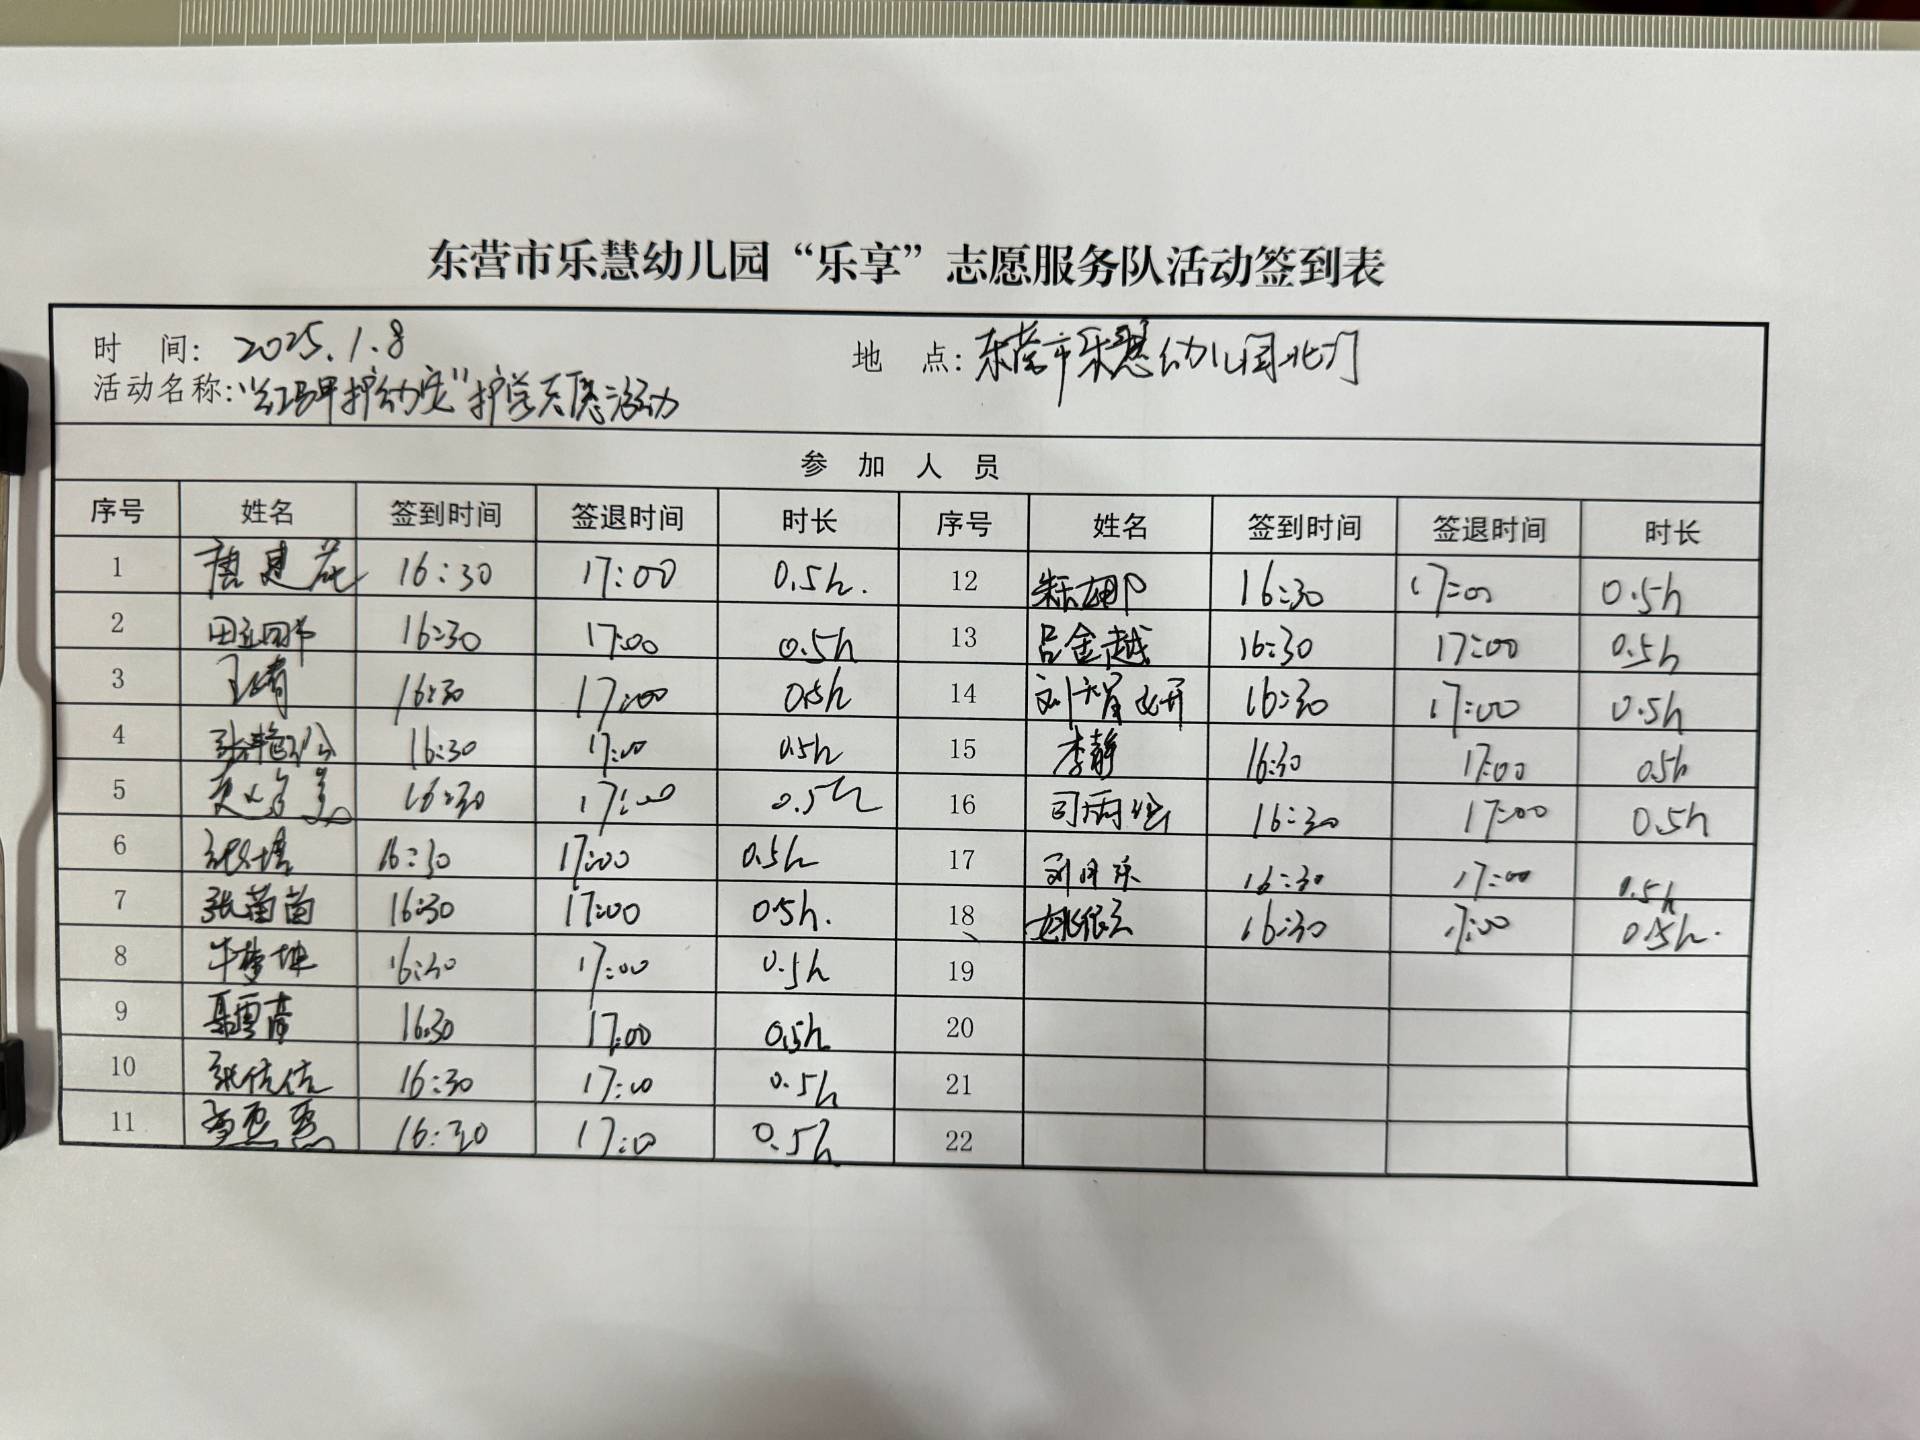 东营市乐慧幼儿园“乐享”志愿服务队活动签到表
时 间: 2025.1.8 地 点: 东营市乐慧幼儿园北门
活动名称: “红马甲护幼宝”护学志愿活动
参 加 人 员
序号 姓名 签到时间 签退时间 时长 序号 姓名 签到时间 签退时间 时长
1 16:30 17:00 0.5h. 12 16:30 17:00 0.5h
2 16:30 17:00 0.5h 13 吕金越 16:30 17:00 0.5h
3 16:30 17:00 0.5h 14 16:30 17:00 0.5h
4 16:30 17:00 0.5h 15 李静 16:30 17:00 0.5h
5 16:30 17:00 0.5h 16 16:30 17:00 0.5h
6 16:30 17:00 0.5h 17 16:30 17:00 0.5h
7 张苗苗 16:30 17:00 0.5h. 18 16:30 17:00 0.5h.
8 16:30 17:00 0.5h 19
9 16:30 17:00 0.5h 20
10 张佶佶 16:30 17:00 0.5h 21
11 16:30 17:00 0.5h 22